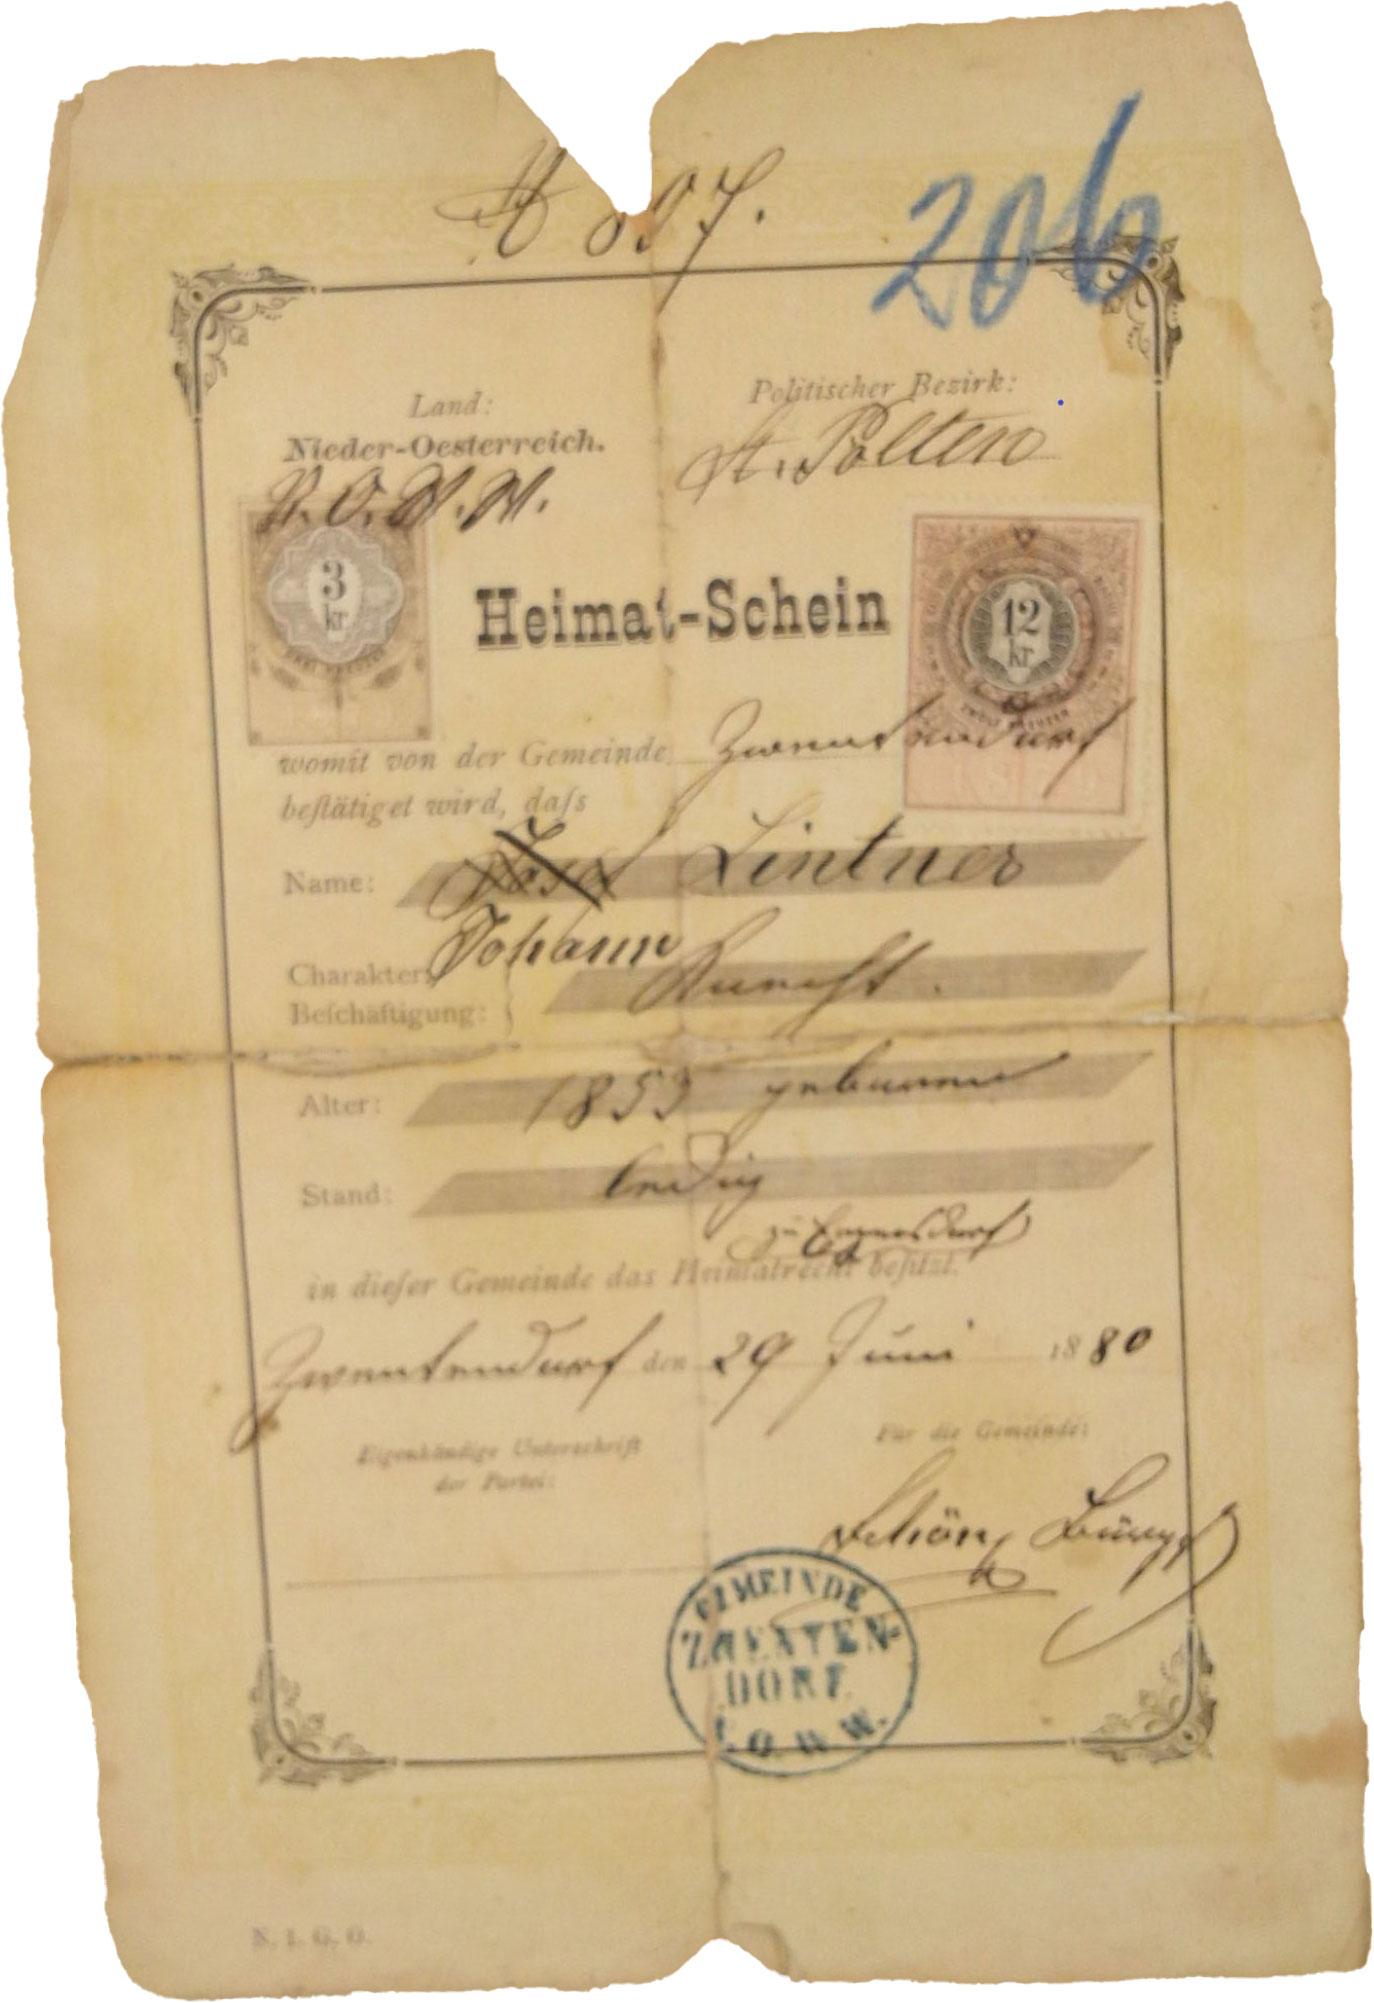 897.
206
Land:
Politischer Bezirk:
Nieder-Oesterreich.
St. Pölten
V. O. W. W.
3
kr
12
kr
Heimat-Schein
womit von der Gemeinde Zwentendorf
beſtätiget wird, daſs
Name: Josef Lintner
Johann
Charakter,
Beſchäftigung: Knecht.
Alter: 1853 geboren
Stand: ledig
zu
in dieſer Gemeinde das Heimatrecht beſitzt.
Zwentendorf den 29 Juni 1880
Eigenhändige Unterschrift
der Partei:
Für die Gemeinde:
Schön
GEMEINDE
ZWENTEN-
DORF
V. O. W. W.